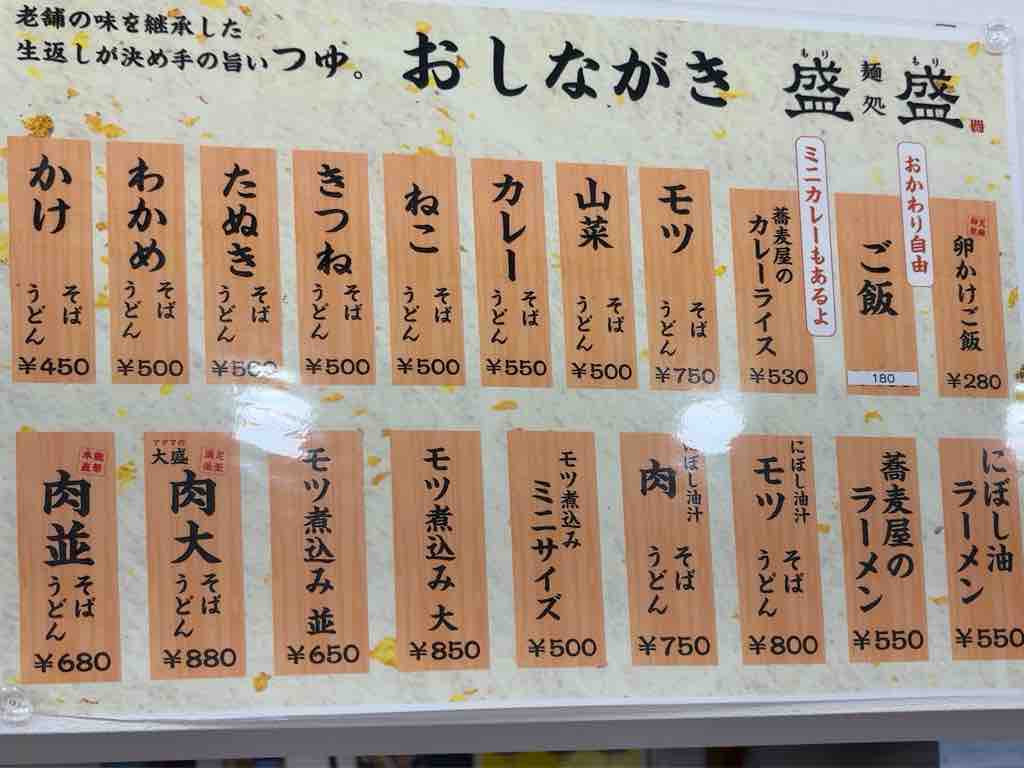 老舗の味を継承した
生返しが決め手の旨いつゆ。
おしながき
もり
盛
麺処
もり
盛
かけ
そば
うどん
¥450
わかめ
そば
うどん
¥500
たぬき
そば
うどん
¥500
きつね
そば
うどん
¥500
ねこ
そば
うどん
¥500
カレー
そば
うどん
¥550
山菜
そば
うどん
¥500
モツ
そば
うどん
¥750
蕎麦屋の
カレーライス
¥530
ミニカレーもあるよ
ご飯
180
おかわり自由
卵かけご飯
¥280
肉並
そば
うどん
¥680
アタマの
大盛
肉大
そば
うどん
¥880
モツ煮込み 並
¥650
モツ煮込み 大
¥850
モツ煮込み
ミニサイズ
¥500
にぼし油汁
肉
そば
うどん
¥750
にぼし油汁
モツ
そば
うどん
¥800
蕎麦屋の
ラーメン
¥550
にぼし油
ラーメン
¥550